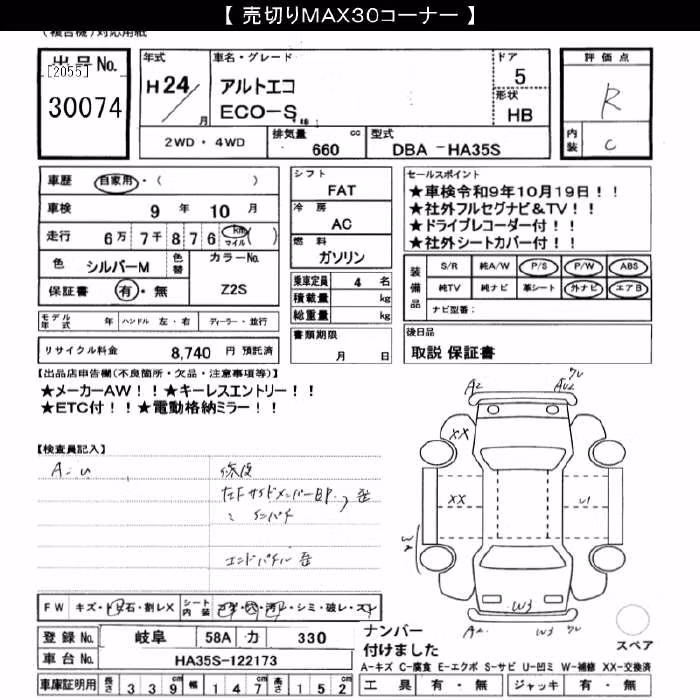 【 売切りMAX30コーナー 】
(複合機)対応用紙
出品No.
[2055]
30074
年式
H24/
月
車名・グレード
アルトエコ
ECO-S
ドア
5
形状
HB
評価点
R
内装
C
2WD ・ 4WD
排気量
660
cc
型式
DBA -HA35S
車歴
自家用 ・(　　　)
車検
9 年 10 月
走行
6万 7千 8 7 6 km マイル ( )
色
シルバーM
色替
カラーNo.
Z2S
保証書
有 ・ 無
モデル年式
年
ハンドル
左 ・ 右
ディーラー ・ 並行
リサイクル料金
8,740 円 預託済
シフト
FAT
冷房
AC
燃料
ガソリン
乗車定員
4 名
積載量
kg
総重量
kg
書類期限
月 日
セールスポイント
★車検令和9年10月19日！！
★社外フルセグナビ&TV！！
★ドライブレコーダー付！！
★社外シートカバー付！！
装備品
S/R
純A/W
P/S
P/W
ABS
純TV
純ナビ
革シート
外ナビ
エアB
ナビ型番：
後日品
取説 保証書
【出品店申告欄(不良箇所・欠品・注意事項等)】
★メーカーAW！！★キーレスエントリー！！
★ETC付！！★電動格納ミラー！！
【検査員記入】
修復
エンドパネル 歪
A2
XX
XX
U1
W3
A2
FW
キズ・トビ石・割レX
シート内装
コゲ・穴・汚レ・シミ・破レ・スレ
登録No.
岐阜
58A
カ
330
車台No.
HA35S-122173
車庫証明用
長さ
3 3 9 cm
幅
1 4 7 cm
高さ
1 5 2 cm
ナンバー
付けました
スペア
A-キズ C-腐食 E-エクボ S-サビ U-凹ミ W-補修 XX-交換済
工具
有 ・ 無
ジャッキ
有 ・ 無